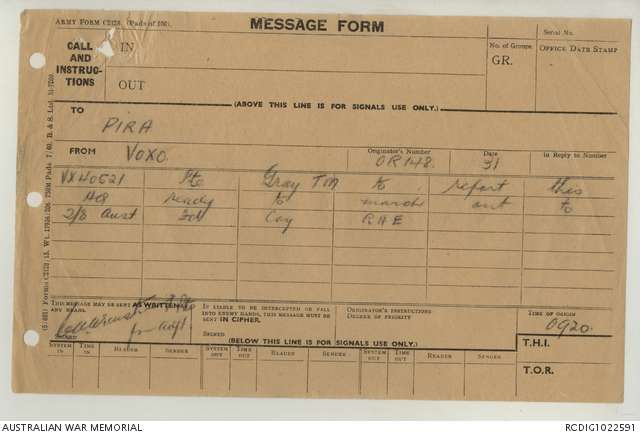 ARMY FORM C2128 (Pads of 100).
MESSAGE FORM
Serial No.
CALL AND INSTRUC- TIONS
IN
OUT
No. of Groups
GR.
OFFICE DATE STAMP
(ABOVE THIS LINE IS FOR SIGNALS USE ONLY.)
TO
PIRA
FROM
VOXO
Originator's Number
OR148
Date
31
In Reply to Number
VX40521 Pte Gray TM to report this
HQ ready to march out to
2/8 Aust Coy RAE
THIS MESSAGE MAY BE SENT AS WRITTEN BY ANY MEANS.
IF LIABLE TO BE INTERCEPTED OR FALL INTO ENEMY HANDS, THIS MESSAGE MUST BE SENT IN CIPHER.
ORIGINATOR'S INSTRUCTIONS
DEGREE OF PRIORITY
TIME OF ORIGIN
0920.
SIGNED
SIGNED
(BELOW THIS LINE IS FOR SIGNALS USE ONLY.)
T.H.I.
T.O.R.
SYSTEM IN TIME IN READER SENDER SYSTEM OUT TIME OUT READER SENDER SYSTEM OUT TIME OUT READER SENDER
AUSTRALIAN WAR MEMORIAL
RCDIG1022591